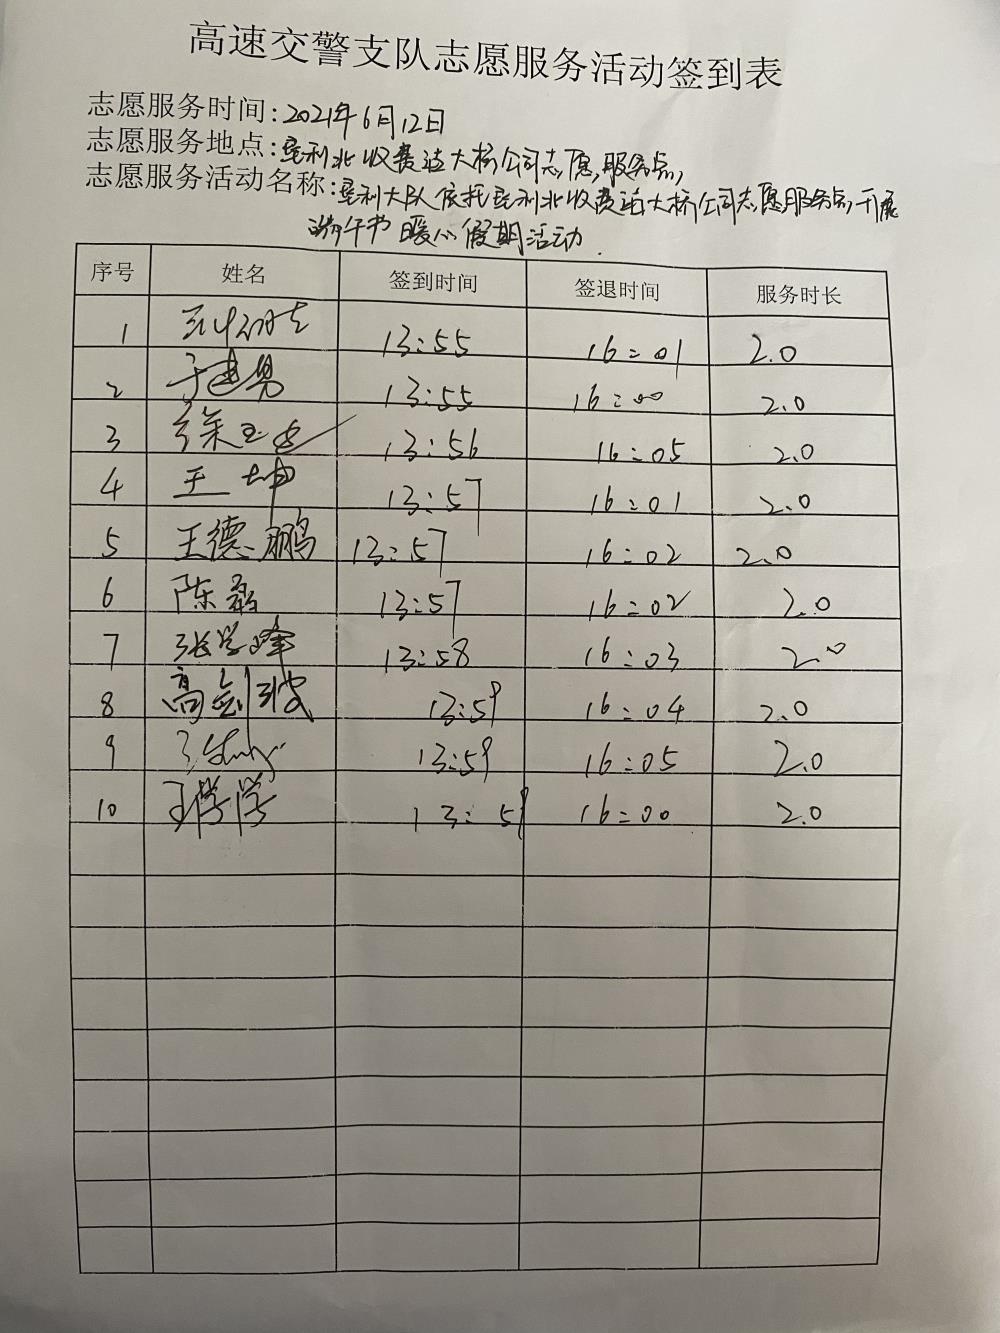 高速交警支队志愿服务活动签到表
志愿服务时间:2021年6月12日
志愿服务地点:垦利北收费站大桥公司志愿服务点,
志愿服务活动名称:垦利大队依托垦利北收费站大桥公司志愿服务点,开展
端午节暖心假期活动.
序号 姓名 签到时间 签退时间 服务时长
1 13:55 16:01 2.0
2 于建勇 13:55 16:00 2.0
3 徐玉 13:56 16:05 2.0
4 王坤 13:57 16:01 2.0
5 王德鹏 13:57 16:02 2.0
6 陈磊 13:57 16:02 2.0
7 张学峰 13:58 16:03 2.0
8 高剑波 13:59 16:04 2.0
9 13:59 16:05 2.0
10 13:59 16:00 2.0